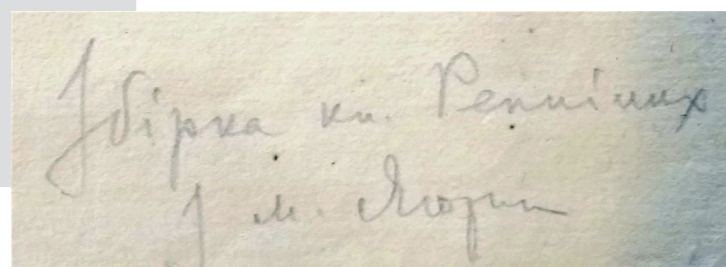 Збірка кн. Репніних
З м. Яготин